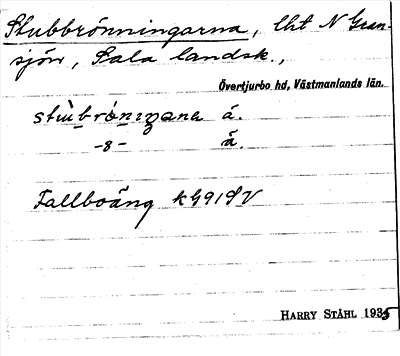 Stubbrönningarna, lht N Gran-
sjön, Sala landsk.,
Övertjurbo hd, Västmanlands län.
stubrøninana å.
-8- å.
Fallboäng kG91SV
HARRY STÅHL 1935